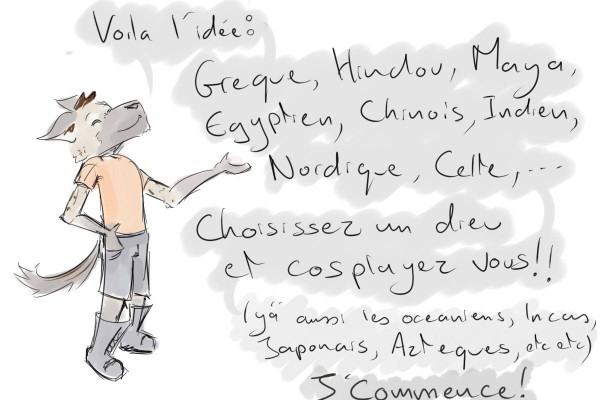 Voila l'idée:
Greque, Hindou, Maya,
Egyptien, Chinois, Indien,
Nordique, Celte, ...
Choisissez un dieu
et cosplayez vous!!
(y'a aussi les oceaniens, Incas,
Japonais, Azteques, etc etc)
J'commence!